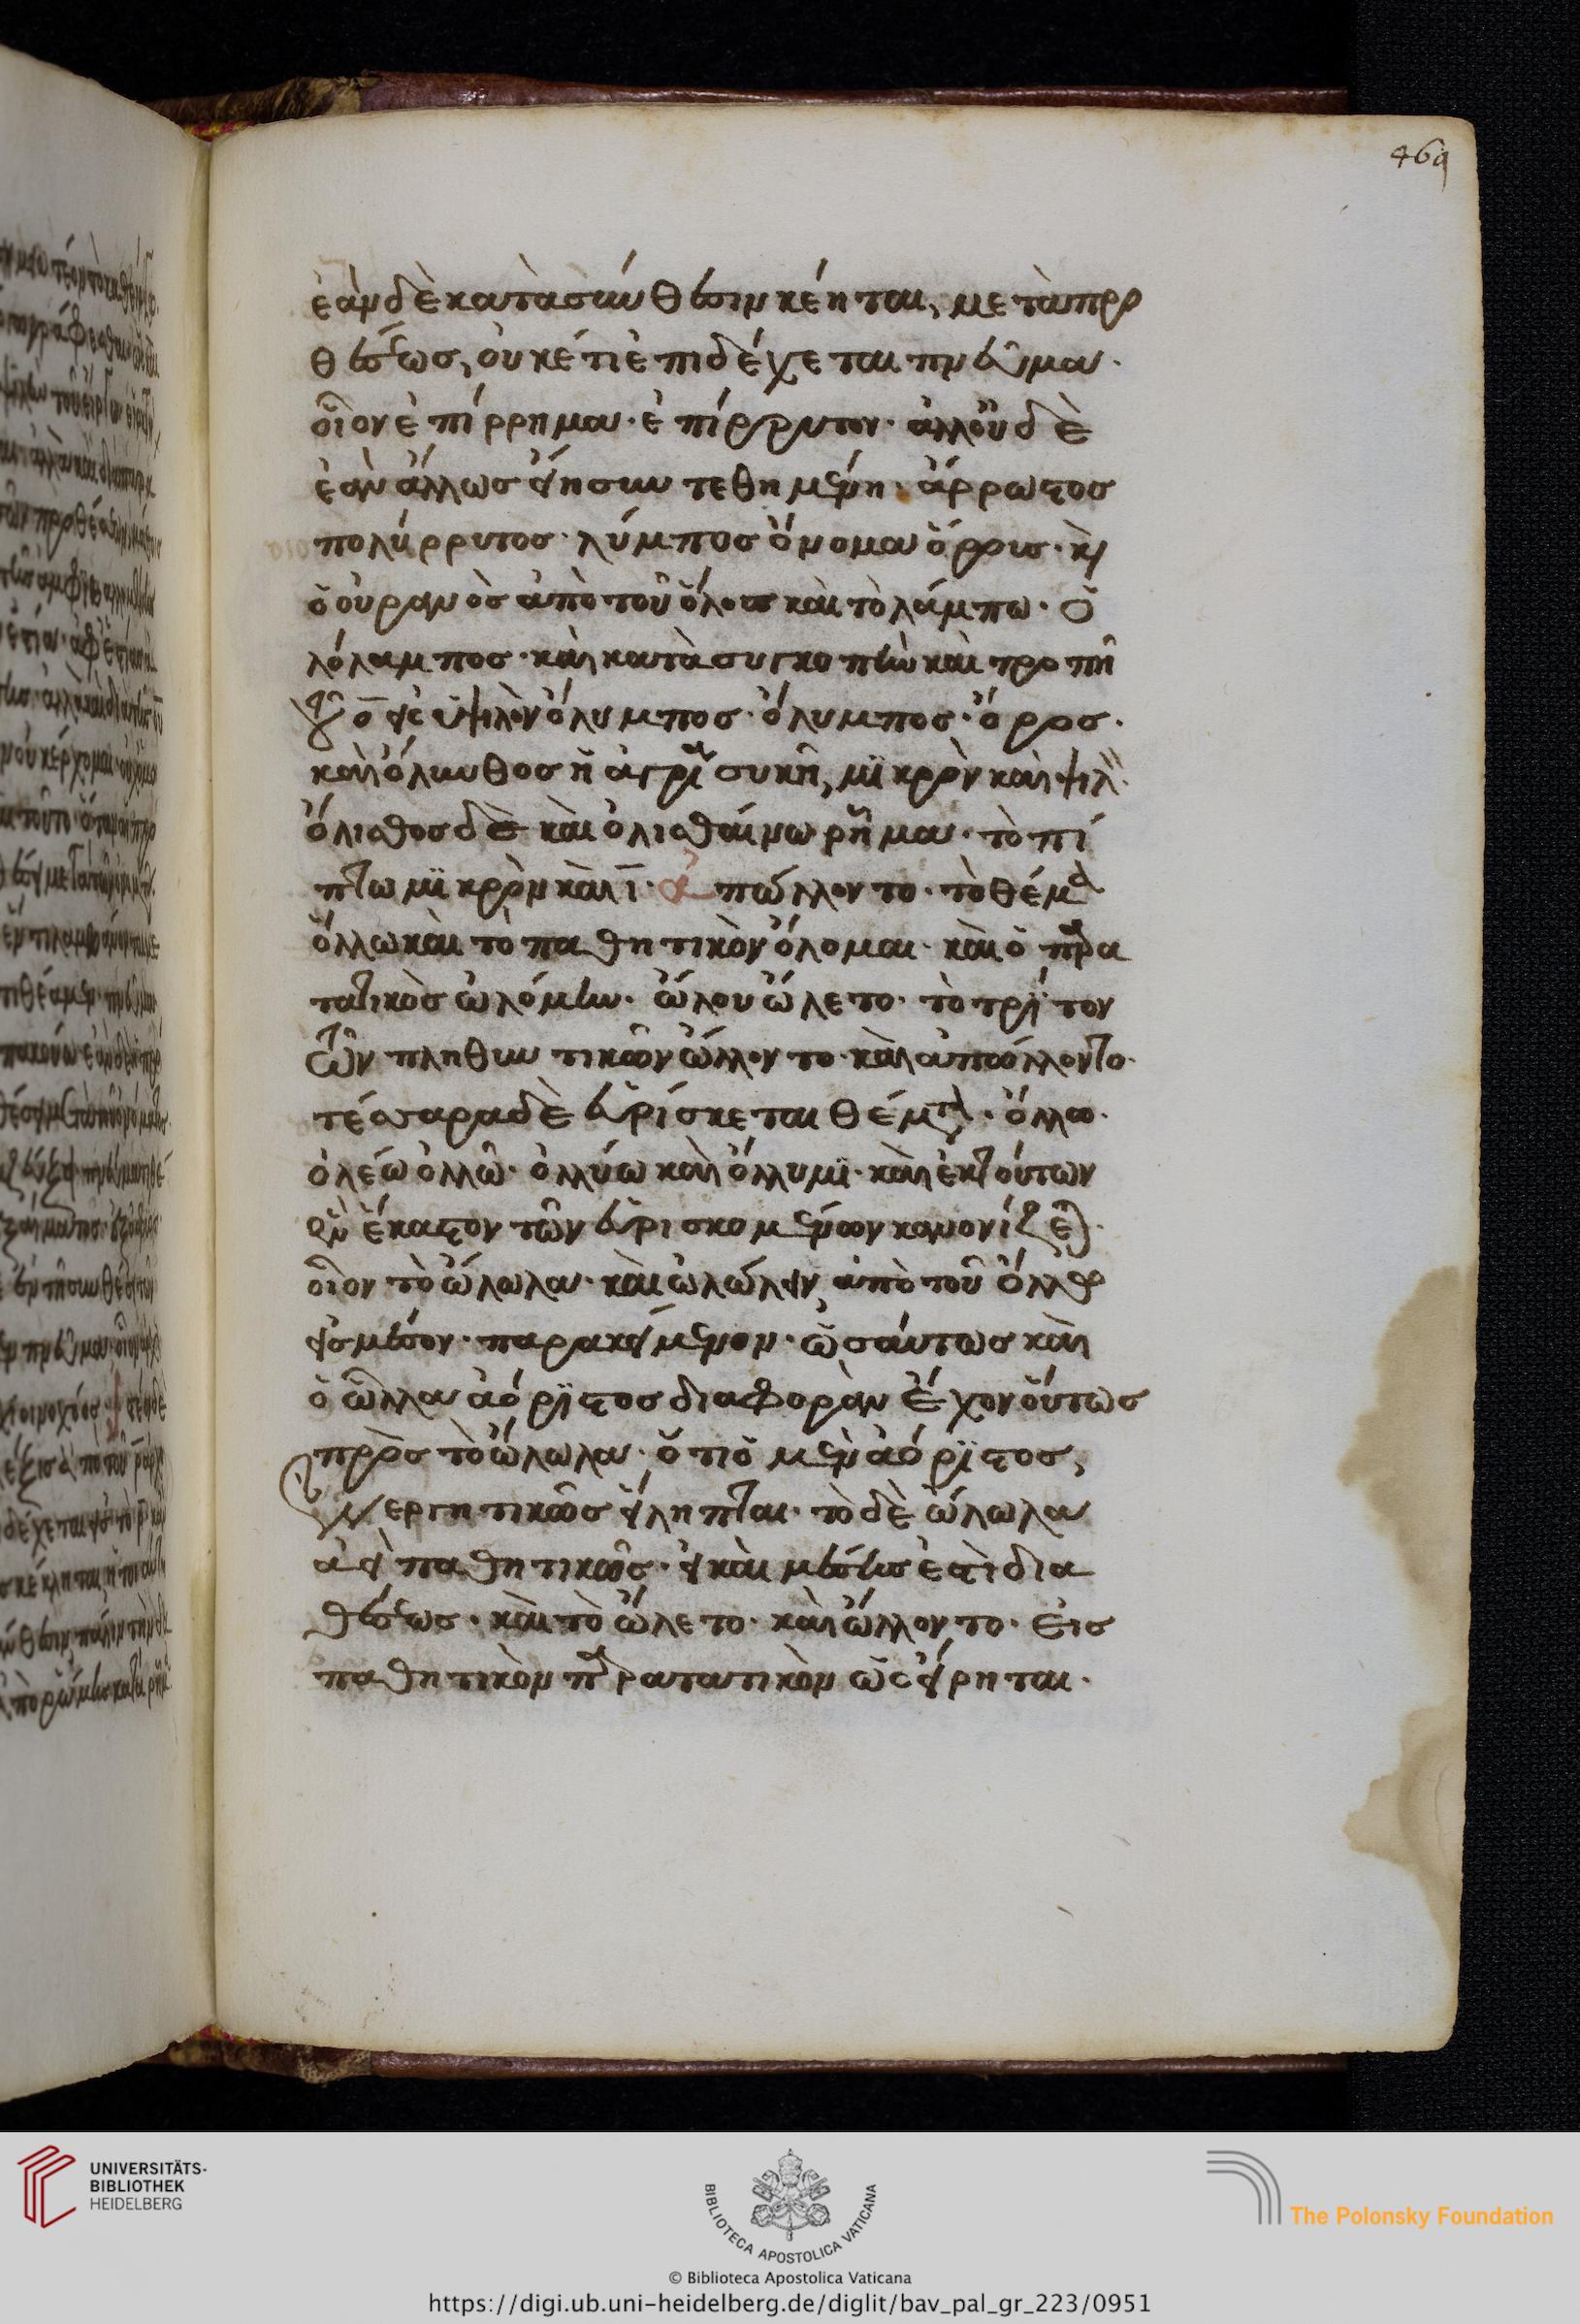 469
ἐὰν δὲ κατὰ σύνθεσιν κέηται, μετὰ προ
θέσεως, οὐκέτι ἐπιδέχεται πνεῦμα.
οἷον ἐπίρρημα. ἐπίρρυτον. ἀλλοῦ δὲ
ἐὰν ἄλλως εἴη συντεθημένη. ἄρρωστος
πολύρρυτος. λύμπος ὄνομα ὄρους. καὶ
ὁ οὐρανὸς ἀπὸ τοῦ ὅλους καὶ τὸ λάμπω. ὁ
λόλαμπος. καὶ κατὰ συγκοπὴν καὶ τροπὴ
ο εἰς ὐψιλὸν ὄλυμπος. ὄλυμπος. ὄρος.
καὶ ὄλυνθος ἡ ἀγρία συκῆ, μϊκρὸν καὶ ψιλ
ὄλισθος δὲ καὶ ὀλισθαίνω ῥῆμα. τὸ πί
πτω μϊκρὸν καὶ ι. ἀπώλλοντο. τὸ θέμα
ὄλλω καὶ τὸ παθητικὸν ὄλομαι. καὶ ὁ παρα
τατικὸς ὠλόμην. ὤλου ὤλετο. τὸ τρίτον
τῶν πληθυντικῶν ὤλλοντο. καὶ ἀπώλλοντο.
τέσσαρα δὲ εὑρίσκεται θέματα. ὄλλω.
ὀλέω ὀλλῶ. ὀλλύω καὶ ὄλλυμϊ. καὶ ἐκ τούτων
οὖν ἕκαστον τῶν εὑρισκομένων κανονίζεται.
οἷον τὸ ὤλωλα. καὶ ὠλώλειν ἀπὸ τοῦ ὄλλω
εἰς μέσον. παρακείμενον. ὡσαύτως καὶ
ὁ ὦλλα ἀόρϊστος διαφορὰν ἔχον οὕτως
πρὸς τὸ ὤλωλα. ὅτι ὁ μὲν ἀόρϊστος,
ἐνεργητικῶς εἴληπται. τὸ δὲ ὤλωλα
ἀεὶ παθητικῶς. εἰ καὶ μέσης ἐστὶ δια
θέσεως. καὶ τὸ ὤλετο. καὶ ὤλλοντο. εἰς
παθητικὸν παρατατικὸν ὡς εἴρηται.
UNIVERSITÄTS-
BIBLIOTHEK
HEIDELBERG
BIBLIOTECA APOSTOLICA VATICANA
The Polonsky Foundation
© Biblioteca Apostolica Vaticana
https://digi.ub.uni-heidelberg.de/diglit/bav_pal_gr_223/0951